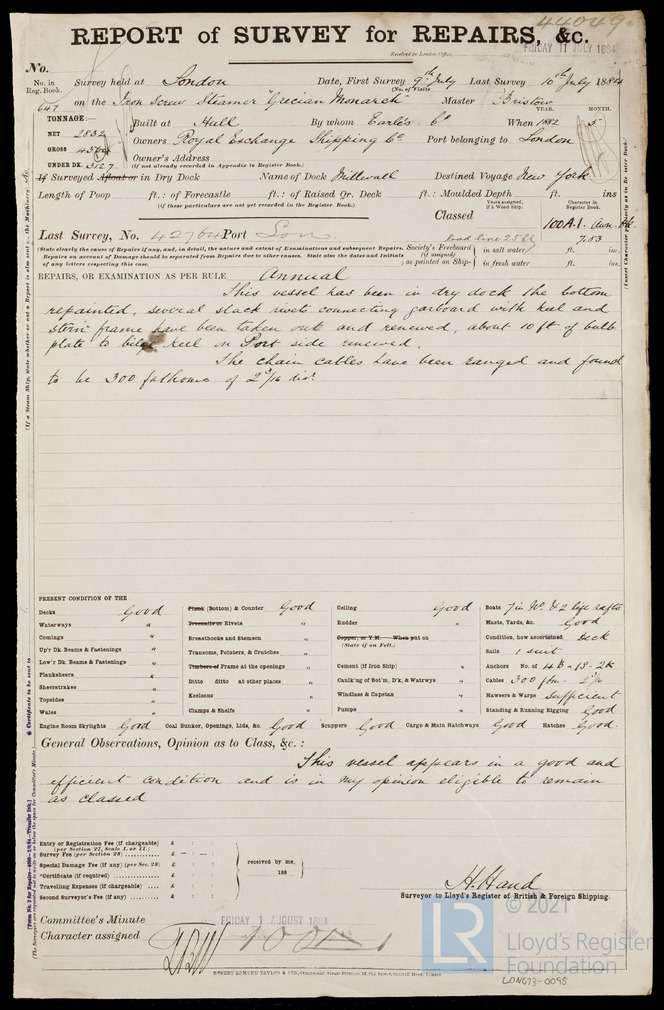 44049
REPORT of SURVEY for REPAIRS, &c.
Received in London Office,
FRIDAY 11 JULY 1884
No.
No. in Reg. Book. Survey held at London Date, First Survey 9th July Last Survey 10th July 1884
(No. of Visits
647 on the Iron Screw Steamer "Grecian Monarch" Master Bristow
TONNAGE:— YEAR. MONTH.
Built at Hull By whom Earle's Co When 1882 5
NET 2832
GROSS
Owners Royal Exchange Shipping Co. Port belonging to London
UNDER DK. 3127
Owner's Address
(if not already recorded in Appendix to Register Book.)
If Surveyed Afloat or in Dry Dock Name of Dock Millwall Destined Voyage New York
Length of Poop ft.: of Forecastle ft.: of Raised Qr. Deck ft.: Moulded Depth ft. ins
(if these particulars are not yet recorded in the Register Book.)
Years assigned, if a Wood Ship. Character in Register Book.
Classed 100A.1.
Last Survey, No. 42764 Port Lon
load line 25ft 7.83
(State clearly the cause of Repairs if any, and, in detail, the nature and extent of Examinations and subsequent Repairs. Society's Freeboard in salt water ft. ins.
Repairs on account of Damage should be separated from Repairs due to other causes. State also the dates and Initials (if assigned)
of any letters respecting this case. as painted on Ship- in fresh water ft. ins.
REPAIRS, OR EXAMINATION AS PER RULE Annual
This vessel has been in dry dock the bottom
repainted, several slack rivets connecting garboard with keel and
stern frame have been taken out and renewed, about 10 ft of bulb
plate to bilge keel on Port side renewed.
The chain cables have been ranged and found
to be 300 fathoms of 2 3/16 dia.
PRESENT CONDITION OF THE
Decks Good
Waterways "
Comings "
Up'r Dk. Beams & Fastenings "
Low'r Dk. Beams & Fastenings "
Planksheers "
Sheerstrakes "
Topsides "
Wales "
Plank (Bottom) & Counter Good
Treenails or Rivets "
Breasthooks and Stemson "
Transoms, Pointers, & Crutches "
Timbers of Frame at the openings "
Ditto ditto at other places "
Keelsons "
Clamps & Shelfs "
Ceiling Good
Rudder "
Copper, or Y.M. When put on
(State if on Felt.)
Cement (If Iron Ship) "
Caulk'ng of Bot'm, D'k, & Watrwys "
Windlass & Capstan "
Pumps "
Boats 7 in No. & 2 life rafts
Masts, Yards, &c. Good
Condition, how ascertained Deck
Sails 1 suit
Anchors No. of 4B-1S-2K
Cables 300 fm - 2 3/16
Hawsers & Warps Sufficient
Standing & Running Rigging Good
Engine Room Skylights Good Coal Bunker, Openings, Lids, &c. Good Scuppers Good Cargo & Main Hatchways Good Hatches Good.
General Observations, Opinion as to Class, &c. :
This vessel appears in a good and
efficient condition and is in my opinion eligible to remain
as classed
Entry or Registration Fee (if chargeable) £
(per Section 27, Scale I. or II.)
Survey Fee (per Section 28) £ - : - :
Special Damage Fee (if any) (per Sec. 28) £
*Certificate (if required) £
Travelling Expenses (if chargeable) £
Second Surveyor's Fee (if any) £
received by me,
188
H. Hand
Surveyor to Lloyd's Register of British & Foreign Shipping.
Committee's Minute FRIDAY 1 AUGUST 1884
Character assigned 100A1
ROBERT EDMUND TAYLOR & SON,
LR
© 2021
Lloyd's Register
Foundation
LON673-0095